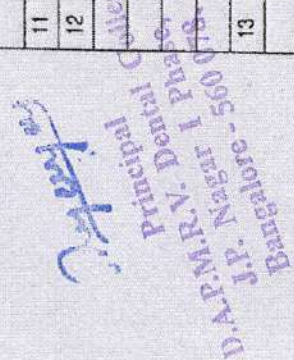 11
12
13
Principal
D.A.P.M.R.V. Dental Colle
J.P. Nagar I Phase,
Bangalore- 560 078.